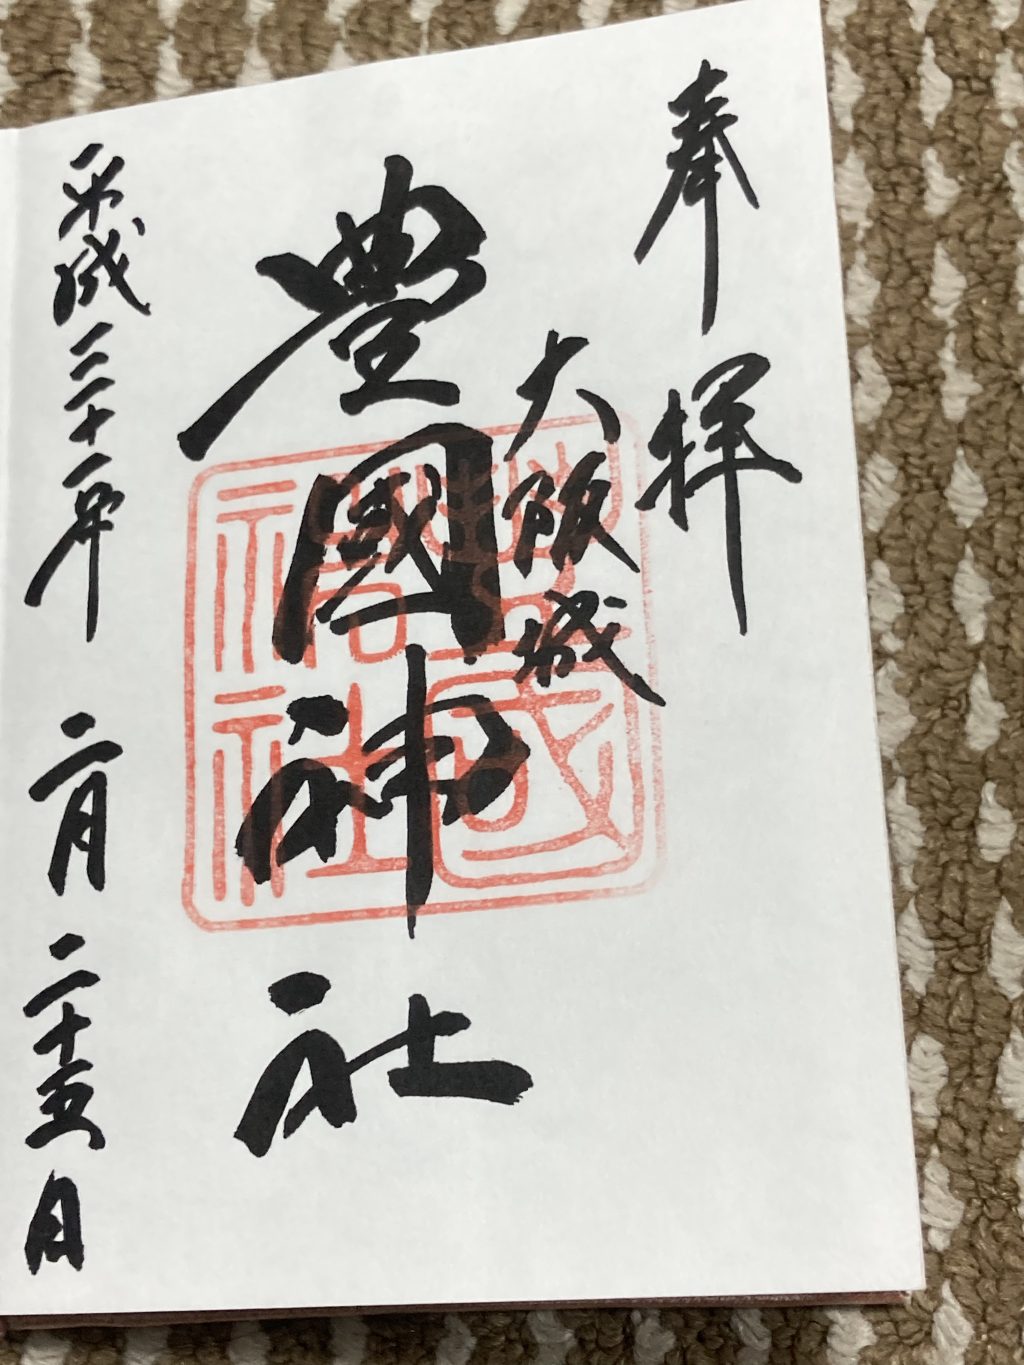 奉拝
大阪城
豊國神社
平成三十一年二月二十五日